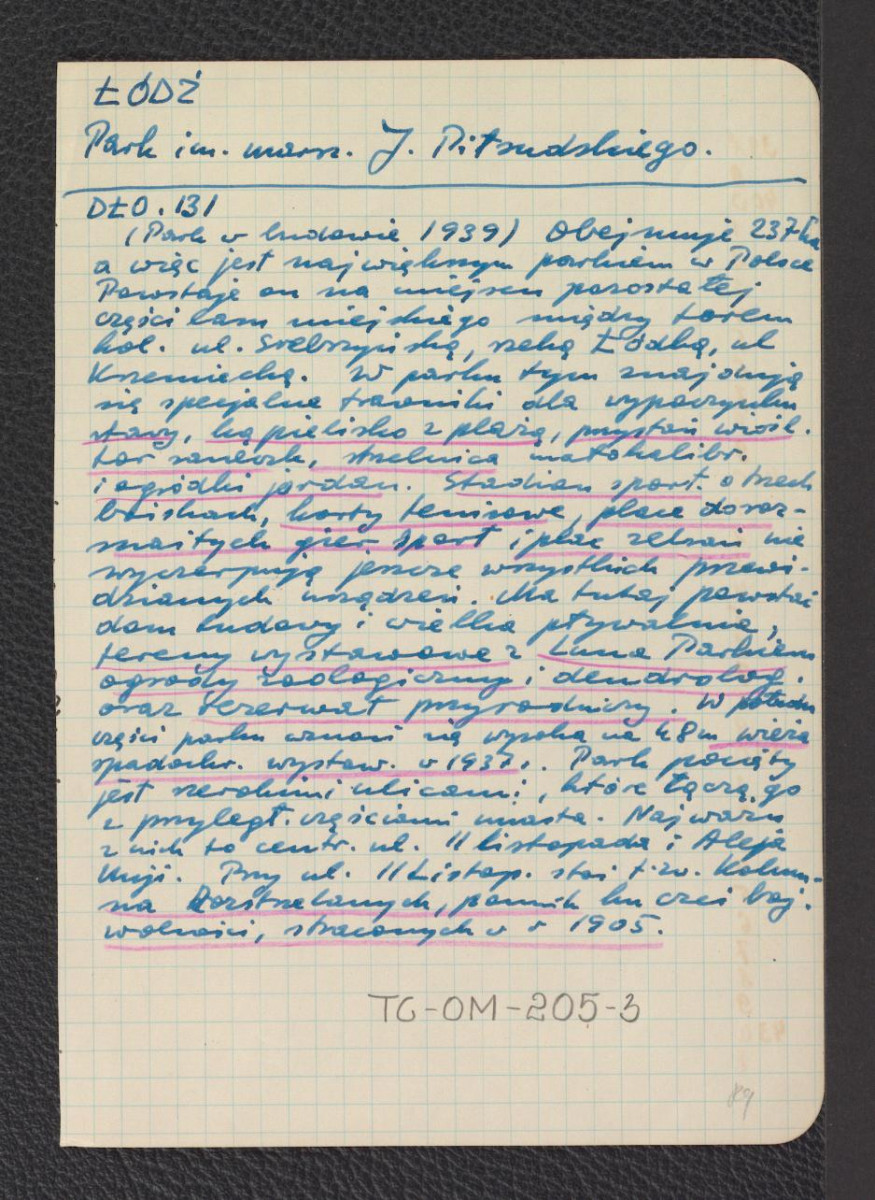 ŁÓDŹ
Park im. marsz. J. Piłsudskiego.
DŁO. 131
(Park w budowie 1939) Obejmuje 237 ha
a więc jest największym parkiem w Polsce
Powstaje on na miejscu pozostałej
części lasu miejskiego między torem
kol. ul. Srebrzyńską, rzeką Łódką, ul
Krzemiecką. W parku tym znajdują
się specjalne trawniki dla wypoczynku
stawy, kąpielisko z plażą, przystań wiośl.
tor saneczk, strzelnica małokalibr.
i ogródki jordan. Stadion sport. o trzech
boiskach, korty tenisowe, place do roz-
maitych gier sport i plac zebrań nie
wyczerpują jeszcze wszystkich przewi-
dzianych urządzeń. Ma tutaj powstać
dom ludowy i wielka pływalnia,
tereny wystawowe z Luna Parkiem
ogrody zoologiczny i dendrolog.
oraz rezerwat przyrodniczy. W połudn
części parku wznosi się wysoka na 48 m wieża
spadochr. wystaw. w 1937 r. Park pocięty
jest szerokimi ulicami, które łączą go
z przyległ. częściami miasta. Najważn
z nich to centr. ul. 11 listopada i Aleja
Unji. Przy ul. 11 Listop. stoi t.zw. Kolum-
na Rozstrzelanych, pomnik ku czci boj.
wolności, straconych w r 1905.
TG-OM-205-3
89